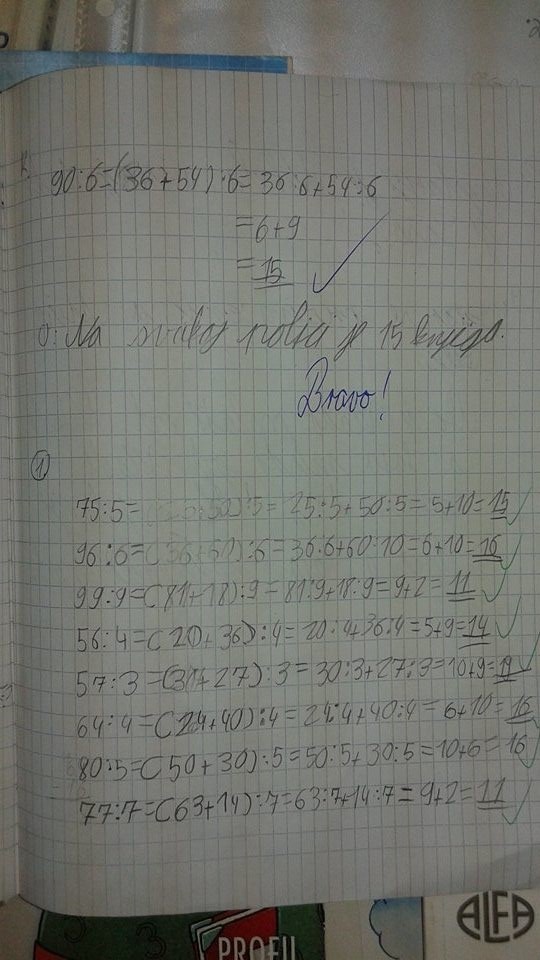 90:6=(36+54):6=36:6+54:6
=6+9
=15
O: Na svakoj polici je 15 knjiga.
Bravo!
1.
75:5=(25+50):5=25:5+50:5=5+10=15
96:6=(36+60):6=36:6+60:10=6+10=16
99:9=(81+18):9=81:9+18:9=9+2=11
56:4=(20+36):4=20:4+36:4=5+9=14
57:3=(30+27):3=30:3+27:3=10+9=19
64:4=(24+40):4=24:4+40:4=6+10=16
80:5=(50+30):5=50:5+30:5=10+6=16
77:7=(63+14):7=63:7+14:7=9+2=11
PROFIL
ALFA